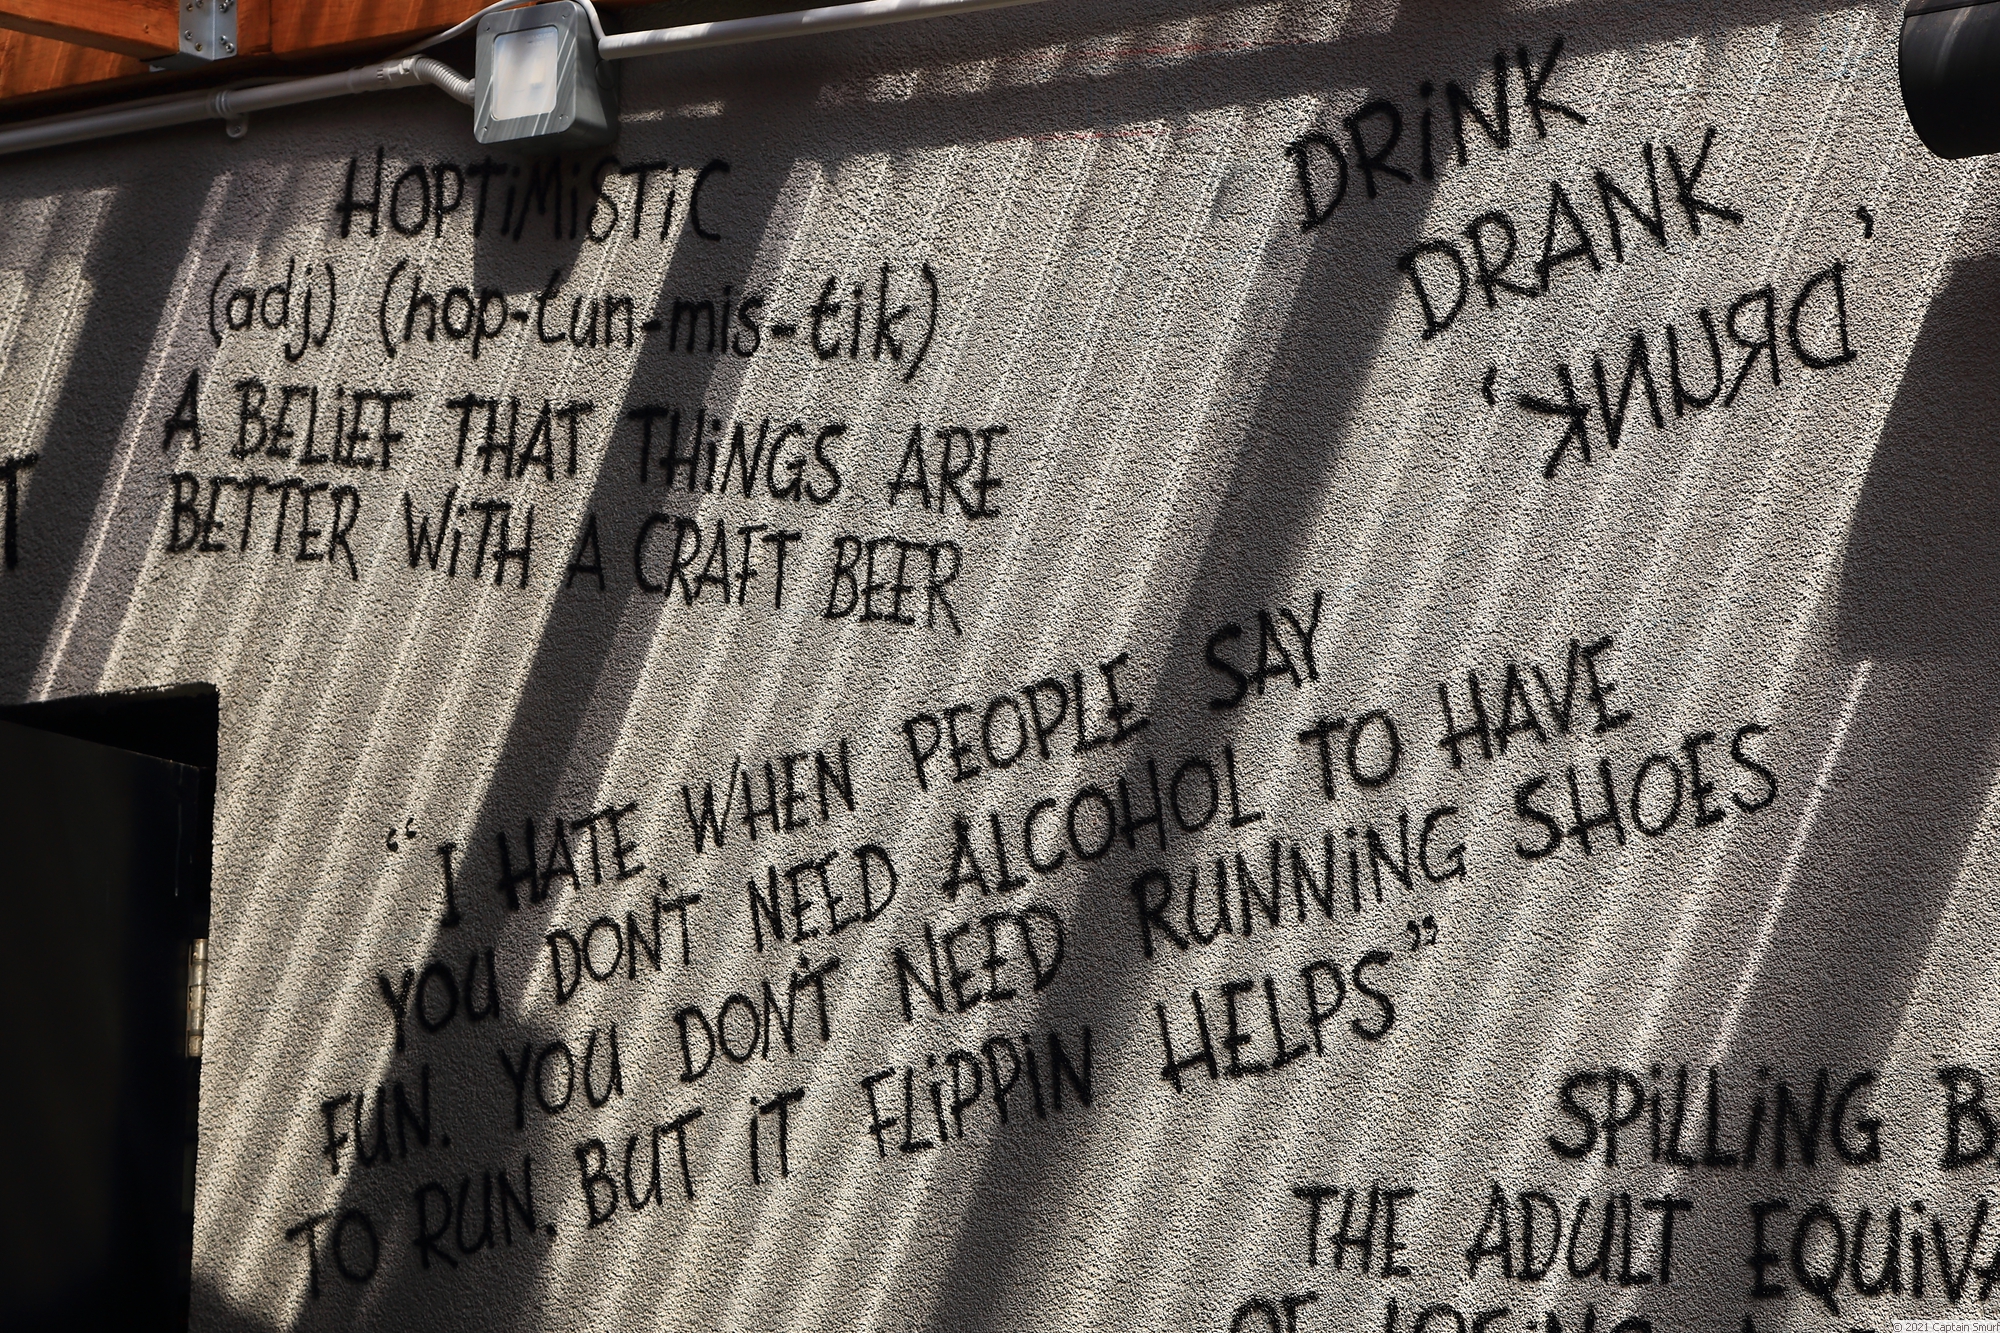 HOPTiMiSTiC
(adj) (hop-tun-mis-tik)
A BELiEF THAT THiNGS ARE
BETTER WiTH A CRAFT BEER
DRiNK
DRANK
'DRUNK'
“I HATE WHEN PEOPLE SAY
YOU DON'T NEED ALCOHOL TO HAVE
FUN. YOU DON'T NEED RUNNiNG SHOES
TO RUN. BUT iT FLiPPiN HELPS”
SPiLLiNG
THE ADULT
OF
© 2021 Captain Smurf